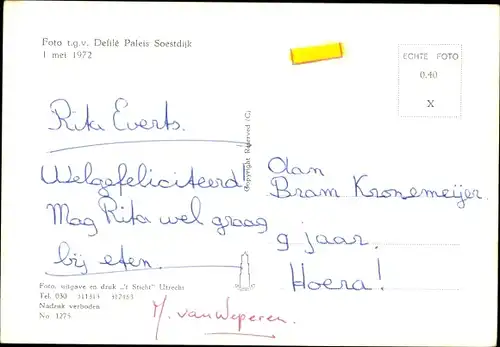 Foto t.g.v. Defilé Paleis Soestdijk
1 mei 1972
ECHTE FOTO
0.40
X
Rita Everts.
Welgefeliciteerd
Mag Rita wel graag
bij eten.
Copyright Reserved (C)
Aan
Bram Kronemeijer.
9 jaar.
Hoera!
Foto, uitgave en druk „'t Sticht" Utrecht
Tel. 030 311313 317453
Nadruk verboden
No 1275
M. van Weperen.